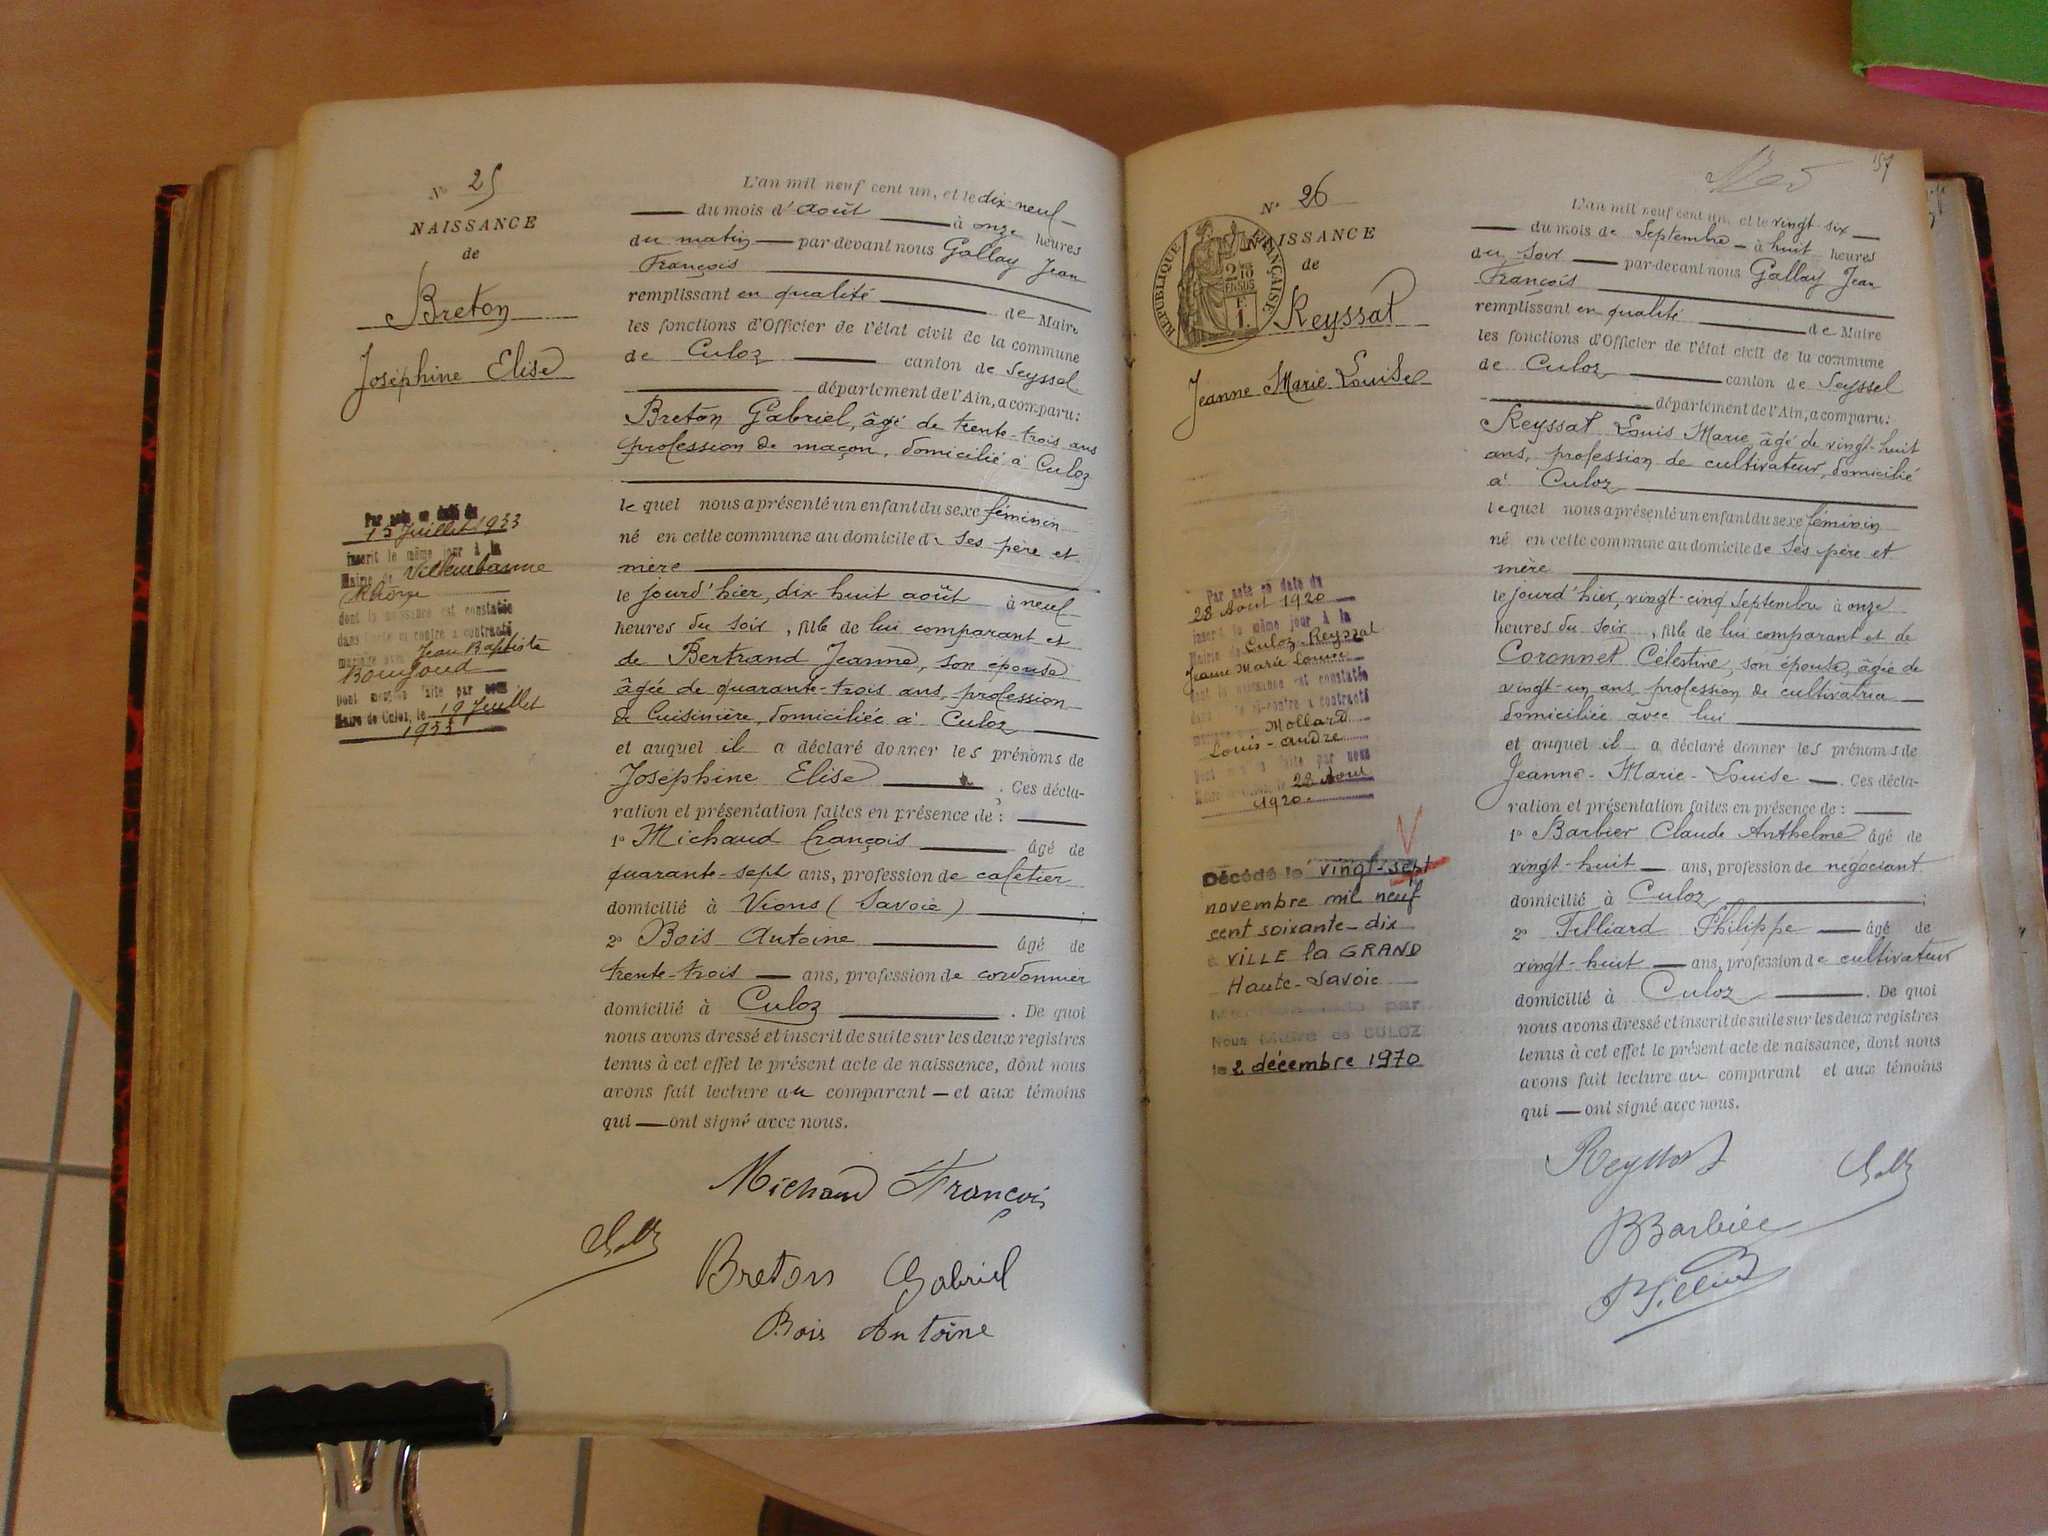 N° 25
NAISSANCE
de
Breton
Joséphine Elise
Par acte en date du
15 Juillet 1933
inscrit le même jour à la
Mairie de Villeurbanne
Rhône
dont la naissance est constatée
dans l'acte ci contre a contracté
mariage avec Jean Baptiste
Dont mention faite par nous
Maire de Culoz, le 19 Juillet
1933
L'an mil neuf cent un, et le dix neuf
du mois d'août à onze heures
du matin par-devant nous Gallay Jean
François
remplissant en qualité de Maire
les fonctions d'Officier de l'état civil de la commune
de Culoz canton de Seyssel
département de l'Ain, a comparu :
Breton Gabriel, âgé de trente-trois ans
profession de maçon, domicilié à Culoz
lequel nous a présenté un enfant du sexe féminin
né en cette commune au domicile de ses père et
mère
le jourd'hier, dix-huit août à neuf
heures du soir, fille de lui comparant et
de Bertrand Jeanne, son épouse
âgée de quarante-trois ans, profession
de Cuisinière, domiciliée à Culoz
et auquel il a déclaré donner les prénoms de
Joséphine Elise . Ces décla-
ration et présentation faites en présence de :
1° Michaud François âgé de
quarante-sept ans, profession de cafetier
domicilié à Vions (Savoie) ;
2° Bois Antoine âgé de
trente-trois ans, profession de cordonnier
domicilié à Culoz . De quoi
nous avons dressé et inscrit de suite sur les deux registres
tenus à cet effet le présent acte de naissance, dont nous
avons fait lecture au comparant et aux témoins
qui ont signé avec nous.
Michaud François
Breton Gabriel
Bois Antoine
157
N° 26
NAISSANCE
de
RÉPUBLIQUE FRANÇAISE
Reyssat
Jeanne Marie Louise
Par acte en date du
28 Aout 1920
inscrit le même jour à la
Mairie de Culoz Reyssat
Jeanne Marie Louise
dont la naissance est constatée
dans l'acte ci-contre a contracté
mariage avec Mollard
Louis-André
Dont mention faite par nous
Maire de Culoz le 28 Aout
1920.
V
Décédé le vingt-sept
novembre mil neuf
cent soixante-dix
à VILLE la GRAND
Haute-Savoie
Mention faite par
Nous Maire de CULOZ
le 2 décembre 1970
L'an mil neuf cent un, et le vingt-six
du mois de Septembre à huit heures
du soir par-devant nous Gallay Jean
François
remplissant en qualité de Maire
les fonctions d'Officier de l'état civil de la commune
de Culoz canton de Seyssel
département de l'Ain, a comparu :
Reyssat Louis Marie, âgé de vingt-huit
ans, profession de cultivateur, domicilié
à Culoz
lequel nous a présenté un enfant du sexe féminin
né en cette commune au domicile de ses père et
mère
le jourd'hier, vingt-cinq Septembre à onze
heures du soir, fille de lui comparant et de
Coronnet Célestine, son épouse, âgée de
vingt-un ans, profession de cultivatrice
domiciliée avec lui
et auquel il a déclaré donner les prénoms de
Jeanne-Marie-Louise . Ces décla-
ration et présentation faites en présence de :
1° Barbier Claude Anthelme âgé de
vingt-huit ans, profession de négociant
domicilié à Culoz ;
2° Tilliard Philippe âgé de
vingt-huit ans, profession de cultivateur
domicilié à Culoz . De quoi
nous avons dressé et inscrit de suite sur les deux registres
tenus à cet effet le présent acte de naissance, dont nous
avons fait lecture au comparant et aux témoins
qui ont signé avec nous.
Reyssat
Barbier